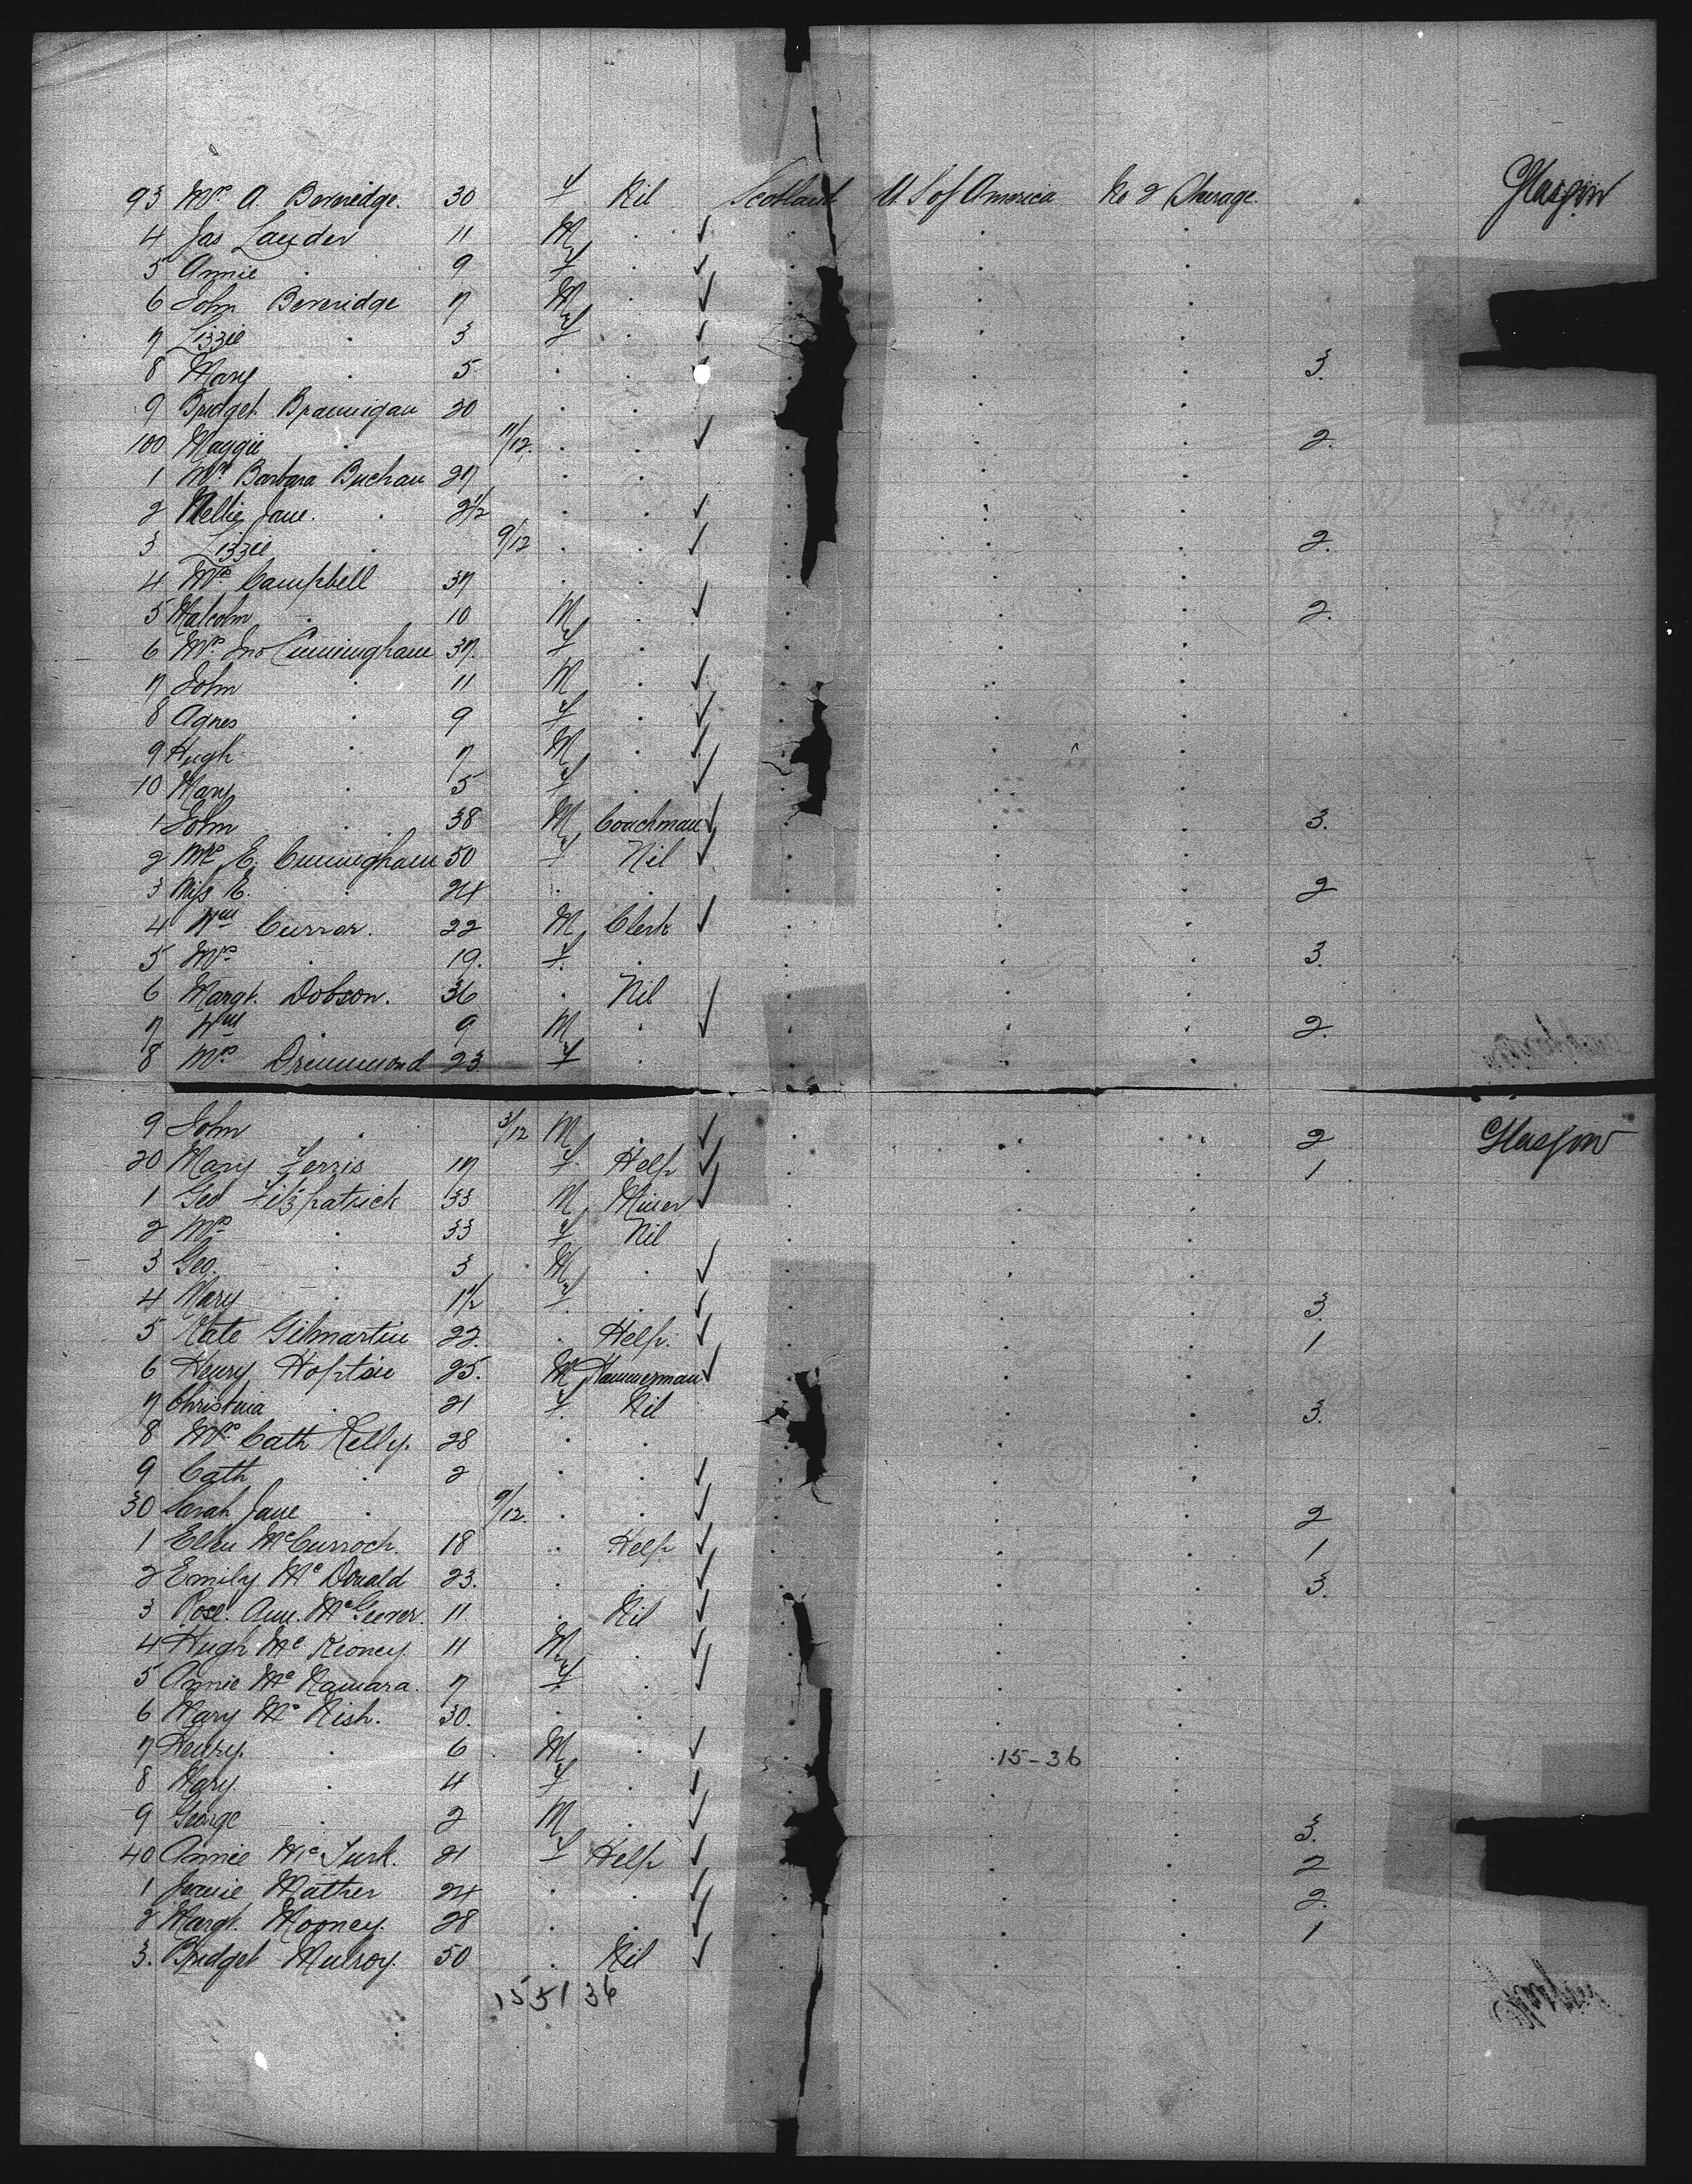 93 Mrs A. Beveridge. 30 f Nil Scotland U S of America No 2 Steerage. Glasgow
4 Jas Lauder 11 M . ✓ . . .
5 Annie . 9 f . ✓ . . .
6 John Beveridge 7 M . ✓ . . .
7 Lizzie . 3 f . ✓ . . .
8 Mary . 5 . . . . . 3.
9 Bridget Brannigan 20 . . . . .
100 Maggie . 11/12. . . ✓ . . . 2.
1 Mrs Barbara Buchan 27 . . . . .
2 Nellie Jane. . 2 1/2 . . ✓ . . .
3 Lizzie . 9/12 . . ✓ . . . 2.
4 Mrs Campbell 37 . . . . .
5 Malcolm . 10 M . ✓ . . . 2.
6 Mrs Jno Cunningham 37. f . . . .
7 John . 11 M . ✓ . . .
8 Agnes . 9 f . ✓ . . .
9 Hugh . 7 M . ✓ . . .
10 Mary . 5 f . ✓ . . .
1 John . 38 M Coachman ✓ . . . 3.
2 Mrs E. Cunningham 50 f Nil ✓ . . .
3 Miss E. . 24 . . . . . 2
4 Wm Curror. 22 M Clerk ✓ . . .
5 Mrs . 19. f. . . . . 3.
6 Margt. Dobson. 36 . Nil ✓ . . .
7 Wm . 9 M . ✓ . . . 2.
8 Mrs Drummond 23 f . . . .
9 John . 3/12 M . ✓ . . . 2 Glasgow
20 Mary Ferris 17 f. Help ✓ . . . 1
1 Geo Fitzpatrick 33 M Miner ✓ . . .
2 Mrs . 33 f Nil . . .
3 Geo. . 3 M . ✓ . . .
4 Mary . 1 1/2 f. . ✓ . . . 3.
5 Kate Gilmartin 22. . Help. ✓ . . . 1
6 Henry 25. M Hammerman ✓ . . .
7 Christina . 21 f. Nil . . . 3.
8 Mrs Cath Kelly. 28 . . . . .
9 Cath . 2 . . ✓ . . .
30 Sarah Jane . 9/12. . . ✓ . . . 2
1 Ellen McCurroch. 18 . Help ✓ . . . 1
2 Emily Mc Donald 23. . . ✓ . . . 3.
3 Rose. Ann. McGeever. 11 . Nil ✓ . . .
4 Hugh Mc Keoney. 11 M . ✓ . . .
5 Annie Mc Namara. 7 f . ✓ . . .
6 Mary Mc Nish. 30. . . . . .
7 Henry. . 6 M . ✓ . 15-36 .
8 Mary. . 4 f . ✓ . . .
9 George . 2 M . ✓ . . . 3.
40 Annie Mc Turk. 21 f Help ✓ . . . 2
1 Jeanie Mather 24 . . ✓ . . . 2.
2 Margt. Mooney. 28 . . ✓ . . . 1
3. Bridget Mulroy. 50 . Nil ✓ . . .
15 51 36